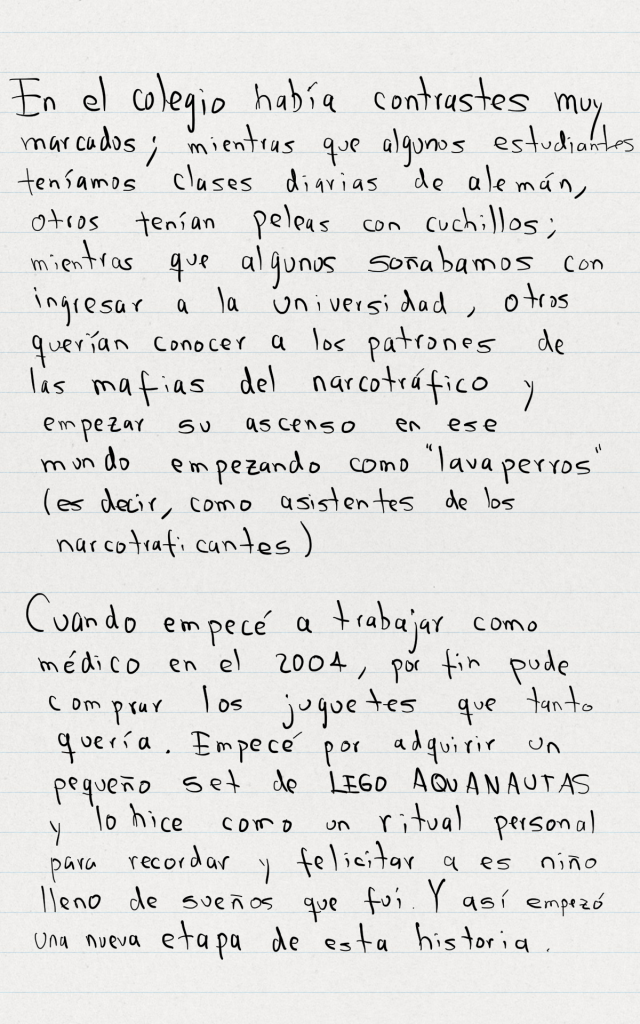 En el colegio había contrastes muy
marcados; mientras que algunos estudiantes
teníamos clases diarias de alemán,
otros tenían peleas con cuchillos;
mientras que algunos soñabamos con
ingresar a la universidad, otros
querían conocer a los patrones de
las mafias del narcotráfico y
empezar su ascenso en ese
mundo empezando como "lavaperros"
(es decir, como asistentes de los
narcotraficantes)
Cuando empecé a trabajar como
médico en el 2004, por fin pude
comprar los juguetes que tanto
quería. Empecé por adquirir un
pequeño set de LEGO AQUANAUTAS
y lo hice como un ritual personal
para recordar y felicitar a es niño
lleno de sueños que fui. Y así empezó
una nueva etapa de esta historia.